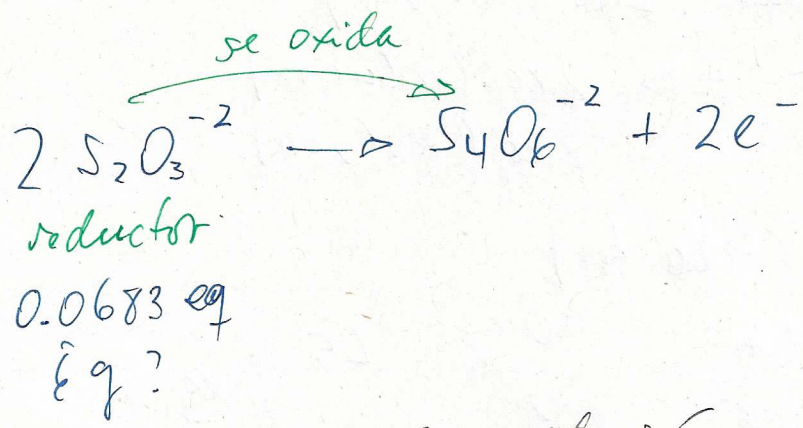 se oxida
2 S₂O₃⁻² → S₄O₆⁻² + 2e⁻
reductor
0.0683 eq
¿g?